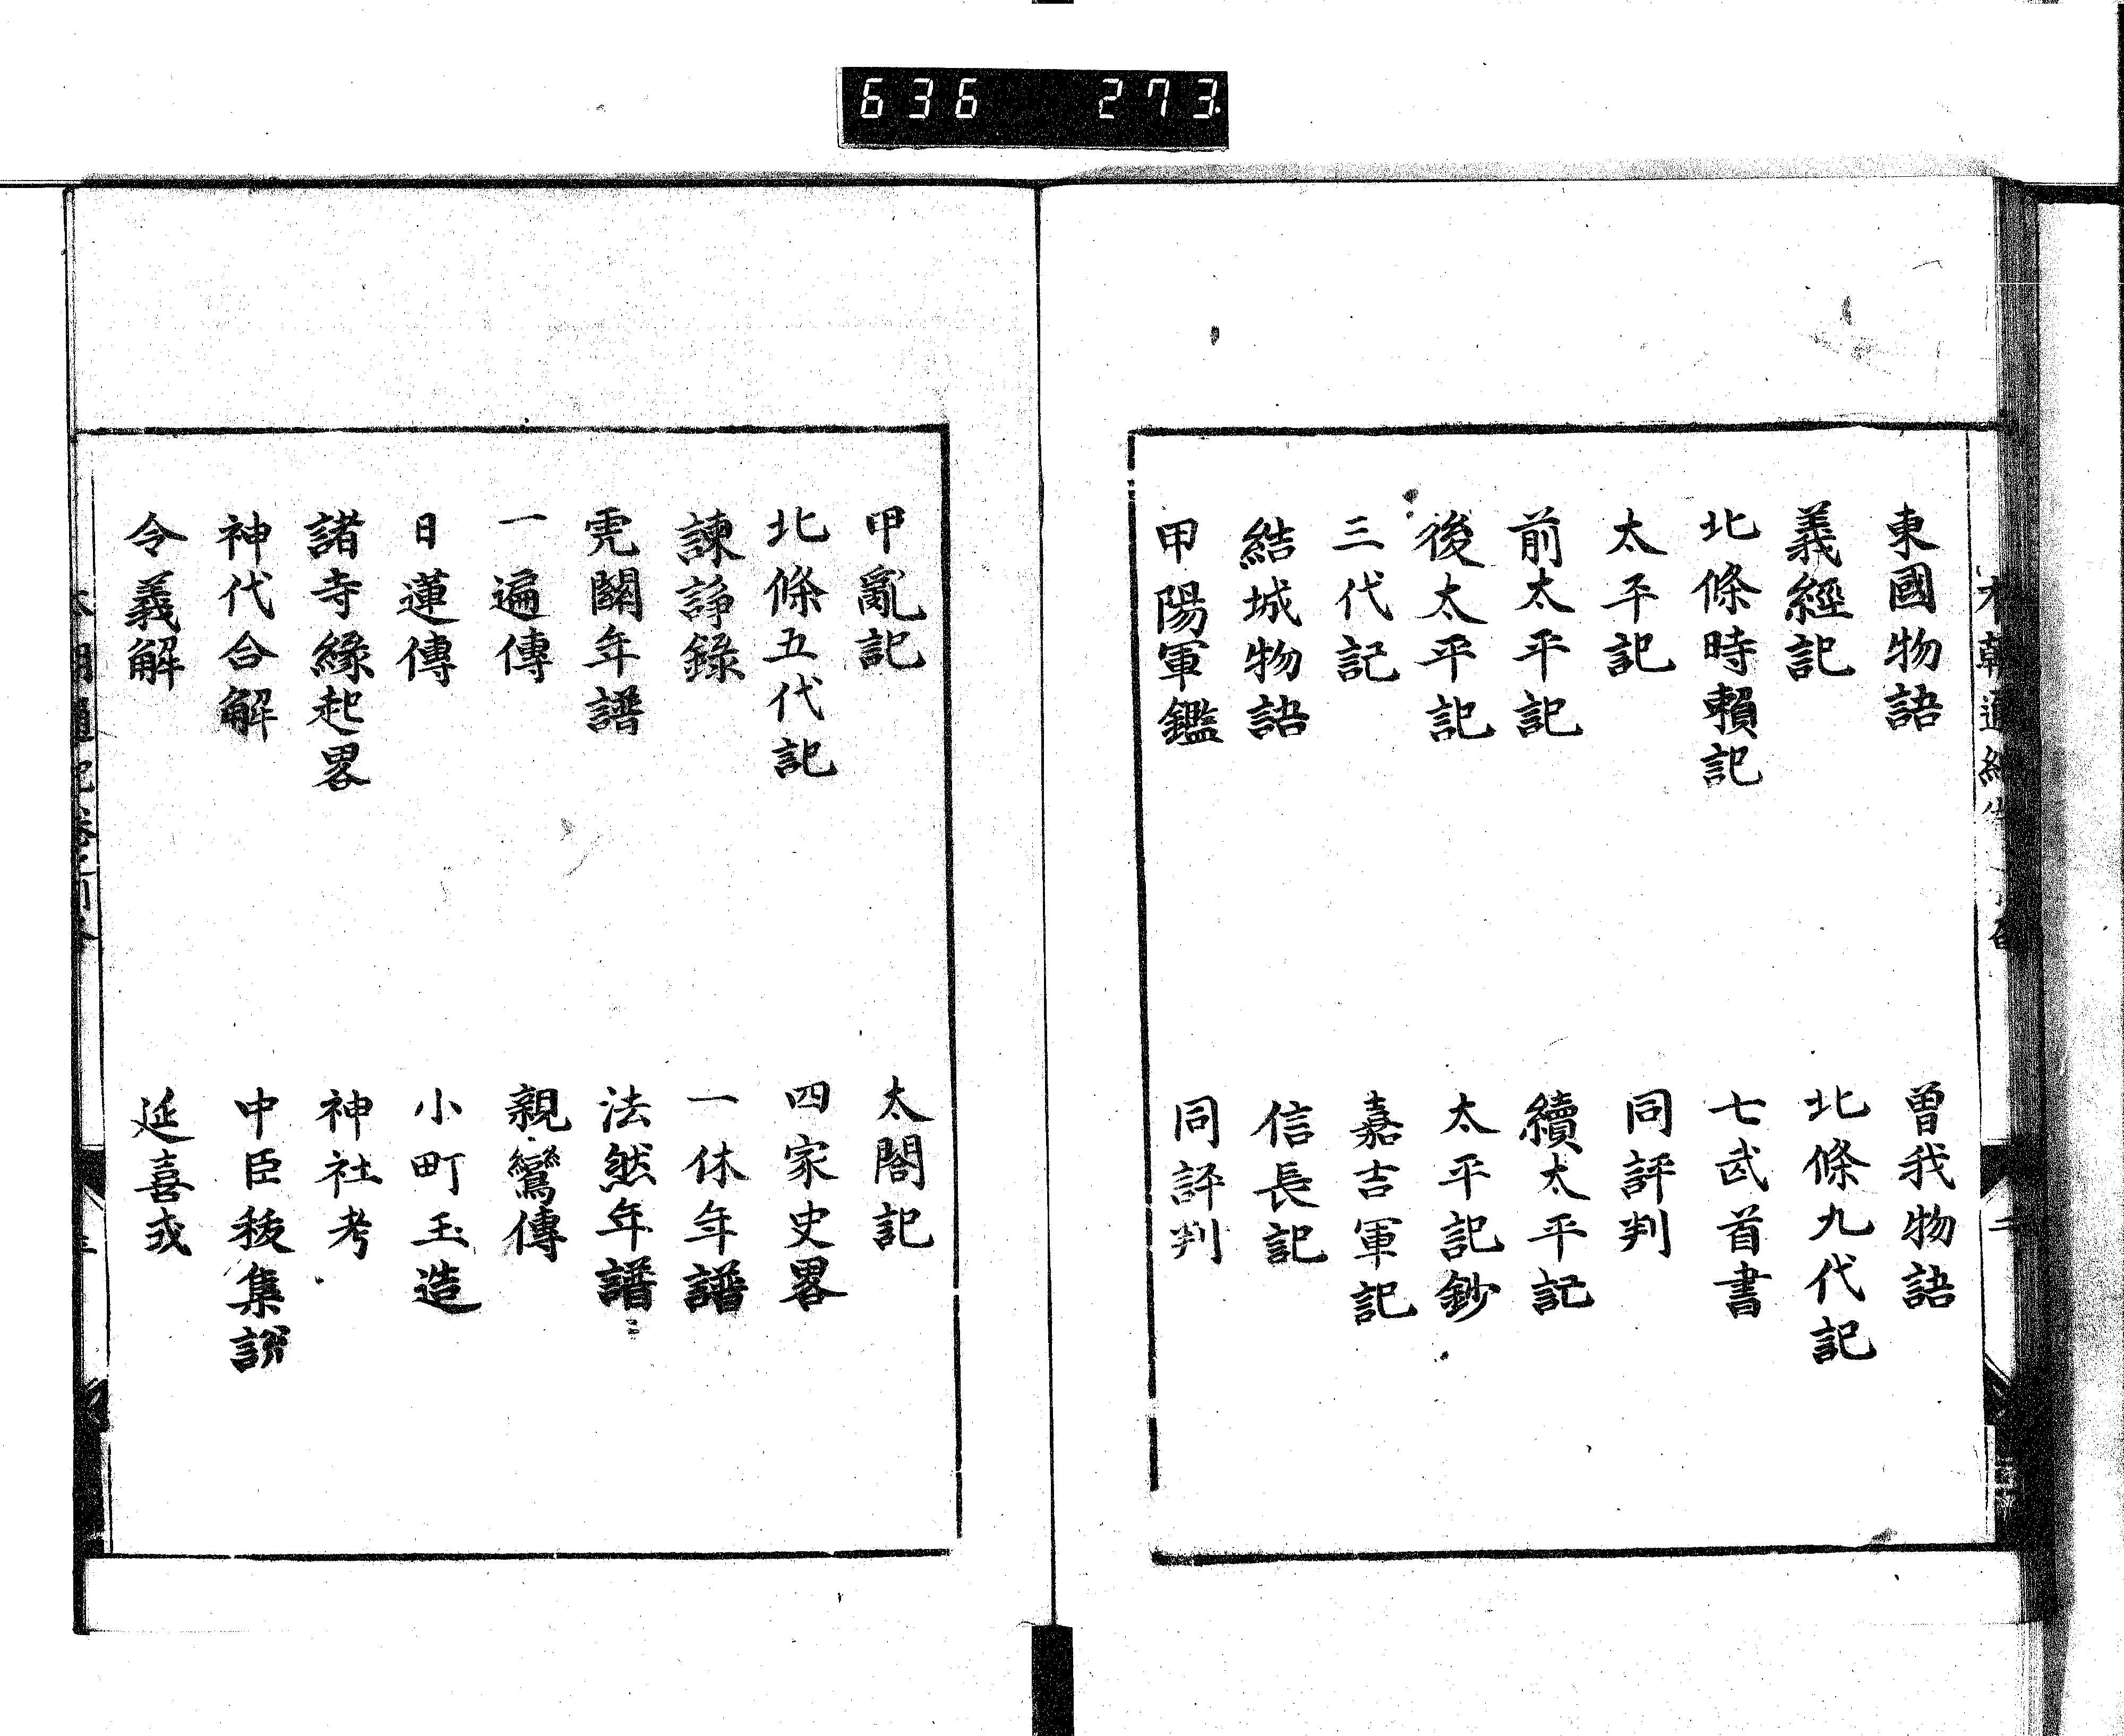 636 273
東國物語 曽我物語
義經記 北條九代記
北條時頼記 七武首書
太平記 同評判
前太平記 續太平記
後太平記 太平記鈔
三代記 嘉吉軍記
結城物語 信長記
甲陽軍鑑 同評判
甲亂記 太閤記
北條五代記 四家史畧
諫諍錄 一休年譜
年譜 法然年譜
一遍傳 親鸞傳
日蓮傳 小町玉造
諸寺緣起畧 神社考
神代合解 中臣祓集説
令義解 延喜式